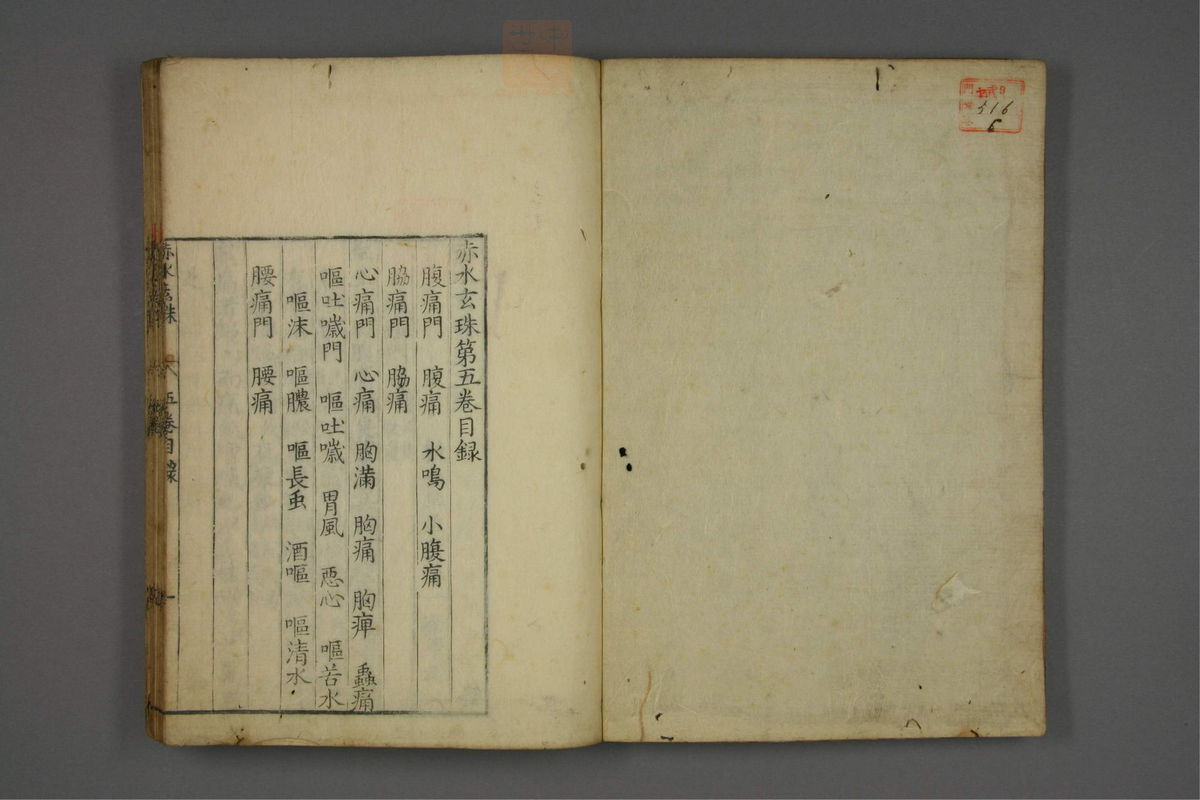 516
赤水玄珠第五卷目録
腹痛門 腹痛 水鳴 小腹痛
脇痛門 脇痛
心痛門 心痛 胸滿 胸痛 胸痺 蟲痛
嘔吐噦門 嘔吐噦 胃風 惡心 嘔苦水
嘔沫 嘔膿 嘔長虫 酒嘔 嘔清水
腰痛門 腰痛
赤水玄珠 五卷目録 一